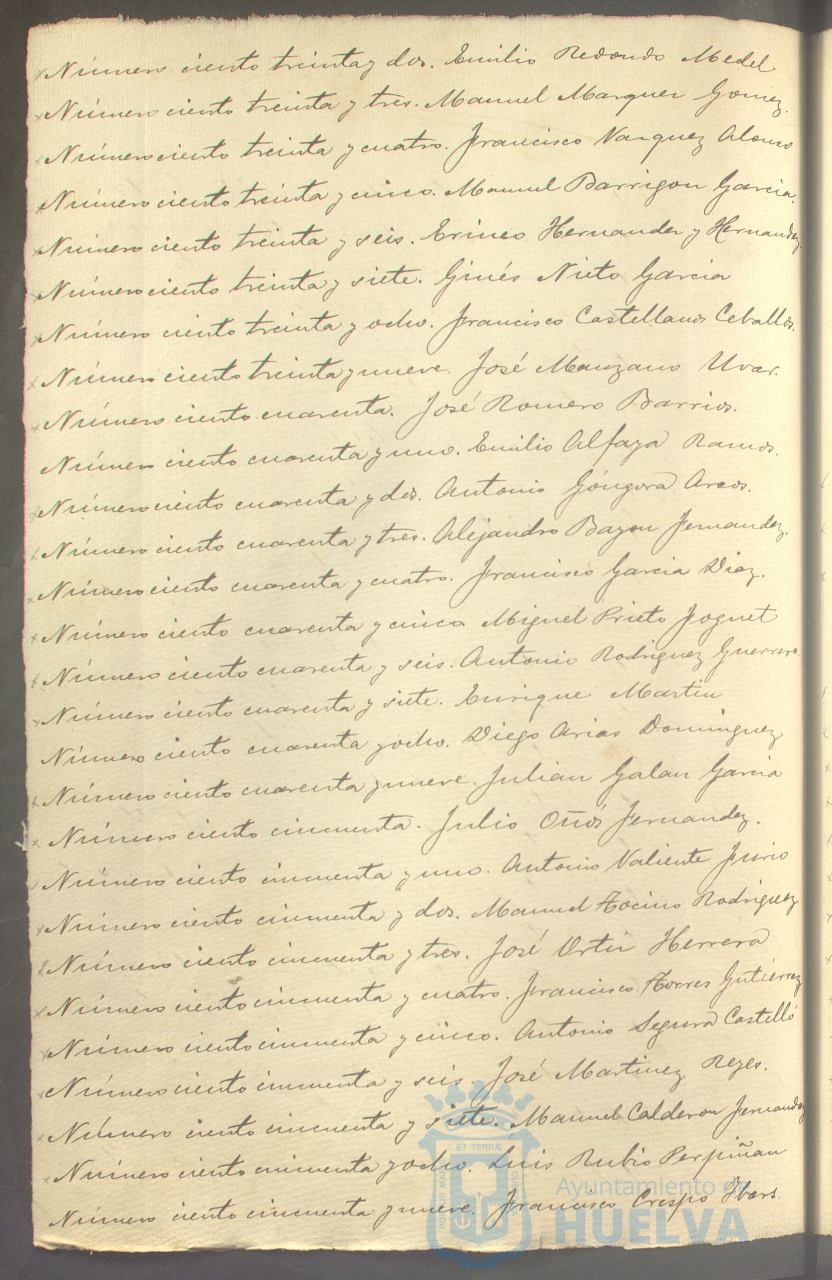 Número ciento treinta y dos. Emilio Redondo Medel
Número ciento treinta y tres. Manuel Marquez Gomez.
Número ciento treinta y cuatro. Francisco Vazquez Alonso
Número ciento treinta y cinco. Manuel Barrigon Garcia.
Número ciento treinta y seis. Erineo Hernandez y Hernandez
Número ciento treinta y siete. Ginés Nieto Garcia
Número ciento treinta y ocho. Francisco Castellanos Ceballos.
Número ciento treinta y nueve. José Manzano
Número ciento cuarenta. José Romero Barrios.
Número ciento cuarenta y uno. Emilio Alfaya Ramos.
Número ciento cuarenta y dos. Antonio Góngora Arcos.
Número ciento cuarenta y tres. Alejandro Bayon Fernandez.
Número ciento cuarenta y cuatro. Francisco Garcia Diaz.
Número ciento cuarenta y cinco Miguel Prieto
Número ciento cuarenta y seis. Antonio Rodriguez Guerrero.
Número ciento cuarenta y siete. Enrique Martin
Número ciento cuarenta y ocho. Diego Arias Dominguez
Número ciento cuarenta y nueve. Julian Galan Garcia
Número ciento cincuenta. Julio Oños Fernandez.
Número ciento cincuenta y uno. Antonio Valiente
Número ciento cincuenta y dos. Manuel Tocino Rodriguez
Número ciento cincuenta y tres. José Ortiz Herrera
Número ciento cincuenta y cuatro. Francisco Torres Gutiérrez
Número ciento cincuenta y cinco. Antonio Segura Castelló
Número ciento cincuenta y seis. José Martinez Reyes.
Número ciento cincuenta y siete. Manuel Calderon Fernandez
Número ciento cincuenta y ocho. Luis Rubio Perpiñan
Número ciento cincuenta y nueve. Francisco Crespo Ibars.
Ayuntamiento de
HUELVA